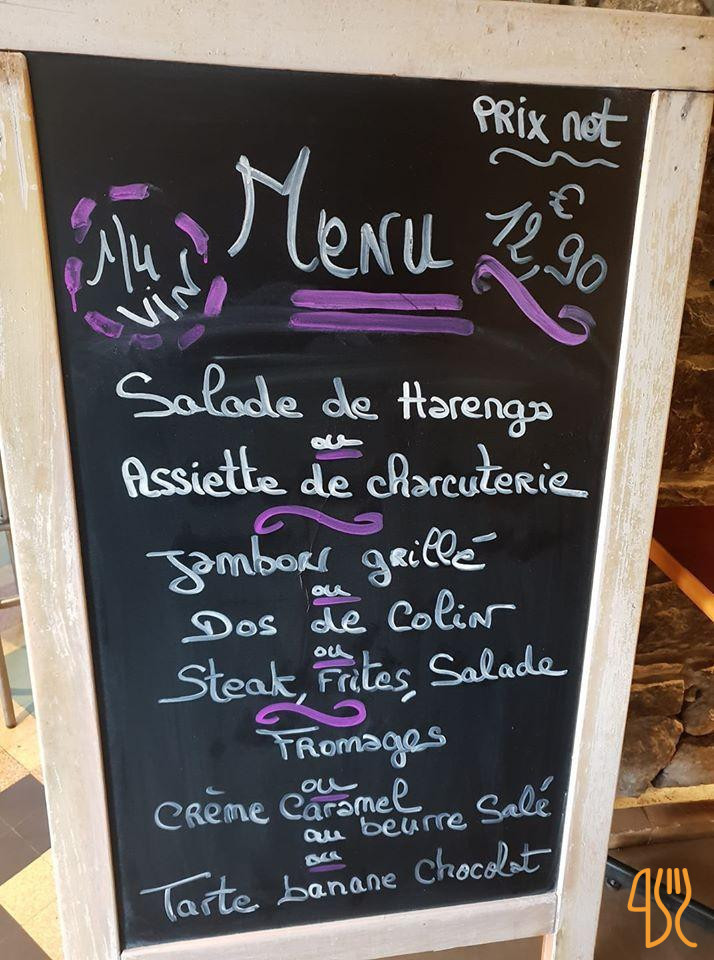 Prix net
Menu
€
12,90
1/4
vin
Salade de Harengs
ou
Assiette de charcuterie
Jambon grillé
ou
Dos de Colin
ou
Steak, Frites, Salade
Fromages
ou
Crème Caramel
au beurre Salé
ou
Tarte banane chocolat